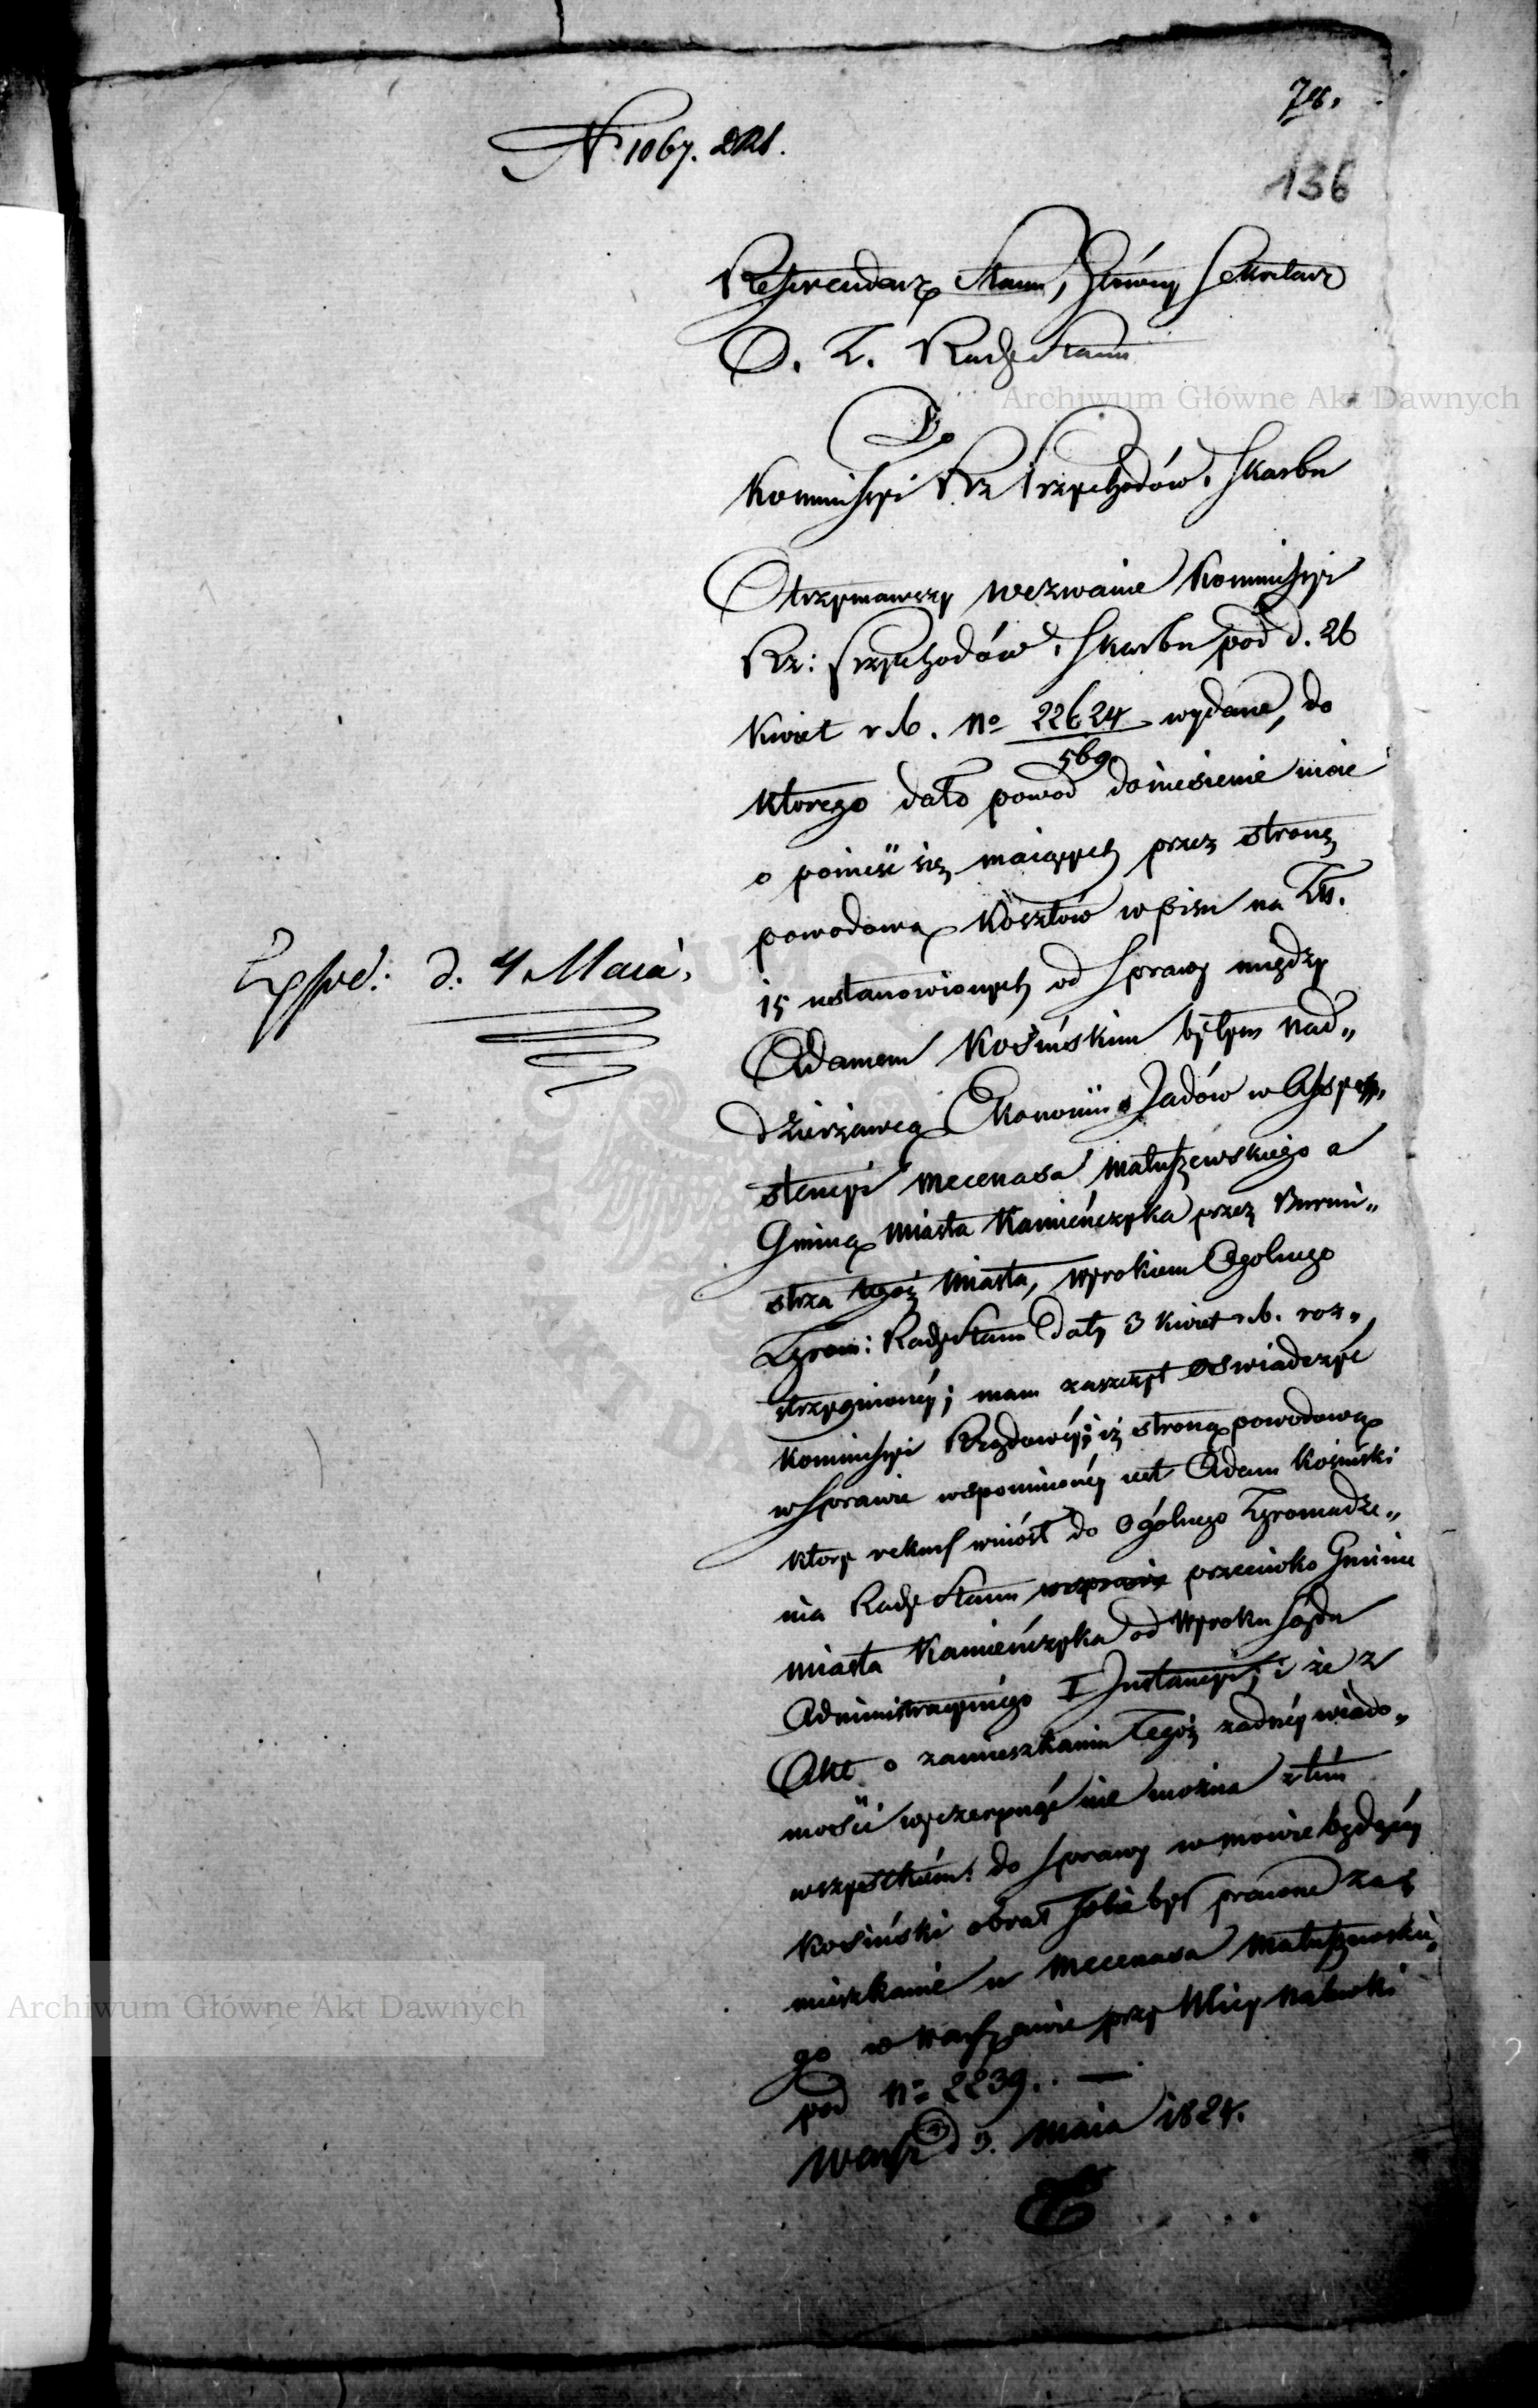 78.
No 1067. DRS.
136
Referendarz Stanu, Główny Sekretarz
O. Z. Rady Stanu
Do
Kommissyi Rz Przychodów i Skarbu
Archiwum Główne Akt Dawnych
Otrzymawszy wezwanie Kommissyi
Rz: Przychodów i Skarbu pod d. 26
Kwiet r. b. No 22624/569 wydane, do
którego dało powód doniesienie moie
o ponieść się maiących przez stronę
powodową kosztów wpisu na Zł.
15 ustanowionych od sprawy między
Exped: d. 4 Maia.
Adamem Kosińskim byłym Nad„
dzierżawcą Ekonomii Jadów w Assy„
stencyi Mecenasa Matuszewskiego a
Gminą Miasta Kamieńczyka przez Burmi„
strza tegoż Miasta, Wyrokiem Ogolnego
Zgrom: Rady Stanu Daty 3 Kwiet r. b. roz„
strzygnionéy; mam zaszczyt oświadczyć
Kommissyi Rządowéy; iż stroną powodową
w sprawie wspomnionéy iest Adam Kosiński
który rekurs wniósł do Ogólnego Zgromadze„
nia Rady Stanu w sprawie przeciwko Gminie
Miasta Kamieńczyka od Wyroku Sądu
Administracyinego I Instancyi; i że z
Akt o zamieszkaniu tegoż żadnéy wiado„
mości wyczerpnąć nie można z tém
wszystkiém do sprawy w mowie będącéy
Kosiński obrał sobie być prawne za„
mieszkanie u Mecenasa Matuszewskie„
go w Warszawie przy Ulicy Nalewki
Archiwum Główne Akt Dawnych
pod No 2239. —
Warsz d 3. Maia 1824.